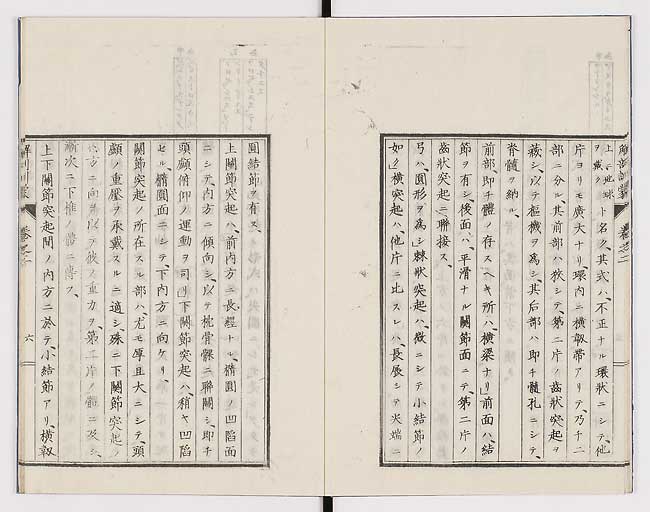 ト名ク、其式ハ、不正ナル環状ニシテ、他
片ヨリモ廣大ナリ、環内ニ横靱帯アリテ、乃チ二
部ニ分ル、其前部ハ狹シテ、第二片ノ齒狀突起ヲ
藏シ、以テ樞機ヲ爲シ、其后部ハ即チ髓孔ニシテ、
脊髓ヲ納ル、
前部、即チ體ノ存スヘキ所ハ、横梁ナリ、前面ハ、結
節ヲ有シ、後面ハ、平滑ナル關節面ニテ、第二片ノ
齒狀突起ニ聯接ス、
弓ハ、圓形ヲ爲シ、棘狀突起ハ、微ニシテ小結節ノ
如ク、横突起ハ、他片ニ比スレハ、長展シテ尖端ニ
圓結節ヲ有ス、
上關節突起ハ、前内方ニ長經ナル、橢圓ノ凹陷面
ニシテ、内方ニ傾向シ、以テ枕骨髁ニ聯關シ、即チ
頭顱俯仰ノ運動ヲ司ル、下關節突起ハ、稍ヤ凹陷
セル橢圓面ニシテ、下内方ニ向ケリ、
關節突起ノ所在スル部ハ、尤モ厚且大ニシテ、頭
顱ノ重壓ヲ承戴スルニ適シ、殊ニ下關節突起ハ、
内方ニ向テ以テ彼ノ重力ヲ、第二片ノ體ニ及シ、
漸次ニ下椎ノ體ニ傳フ、
上下關節突起間ノ内方ニ於テ、小結節アリ、横靱
六